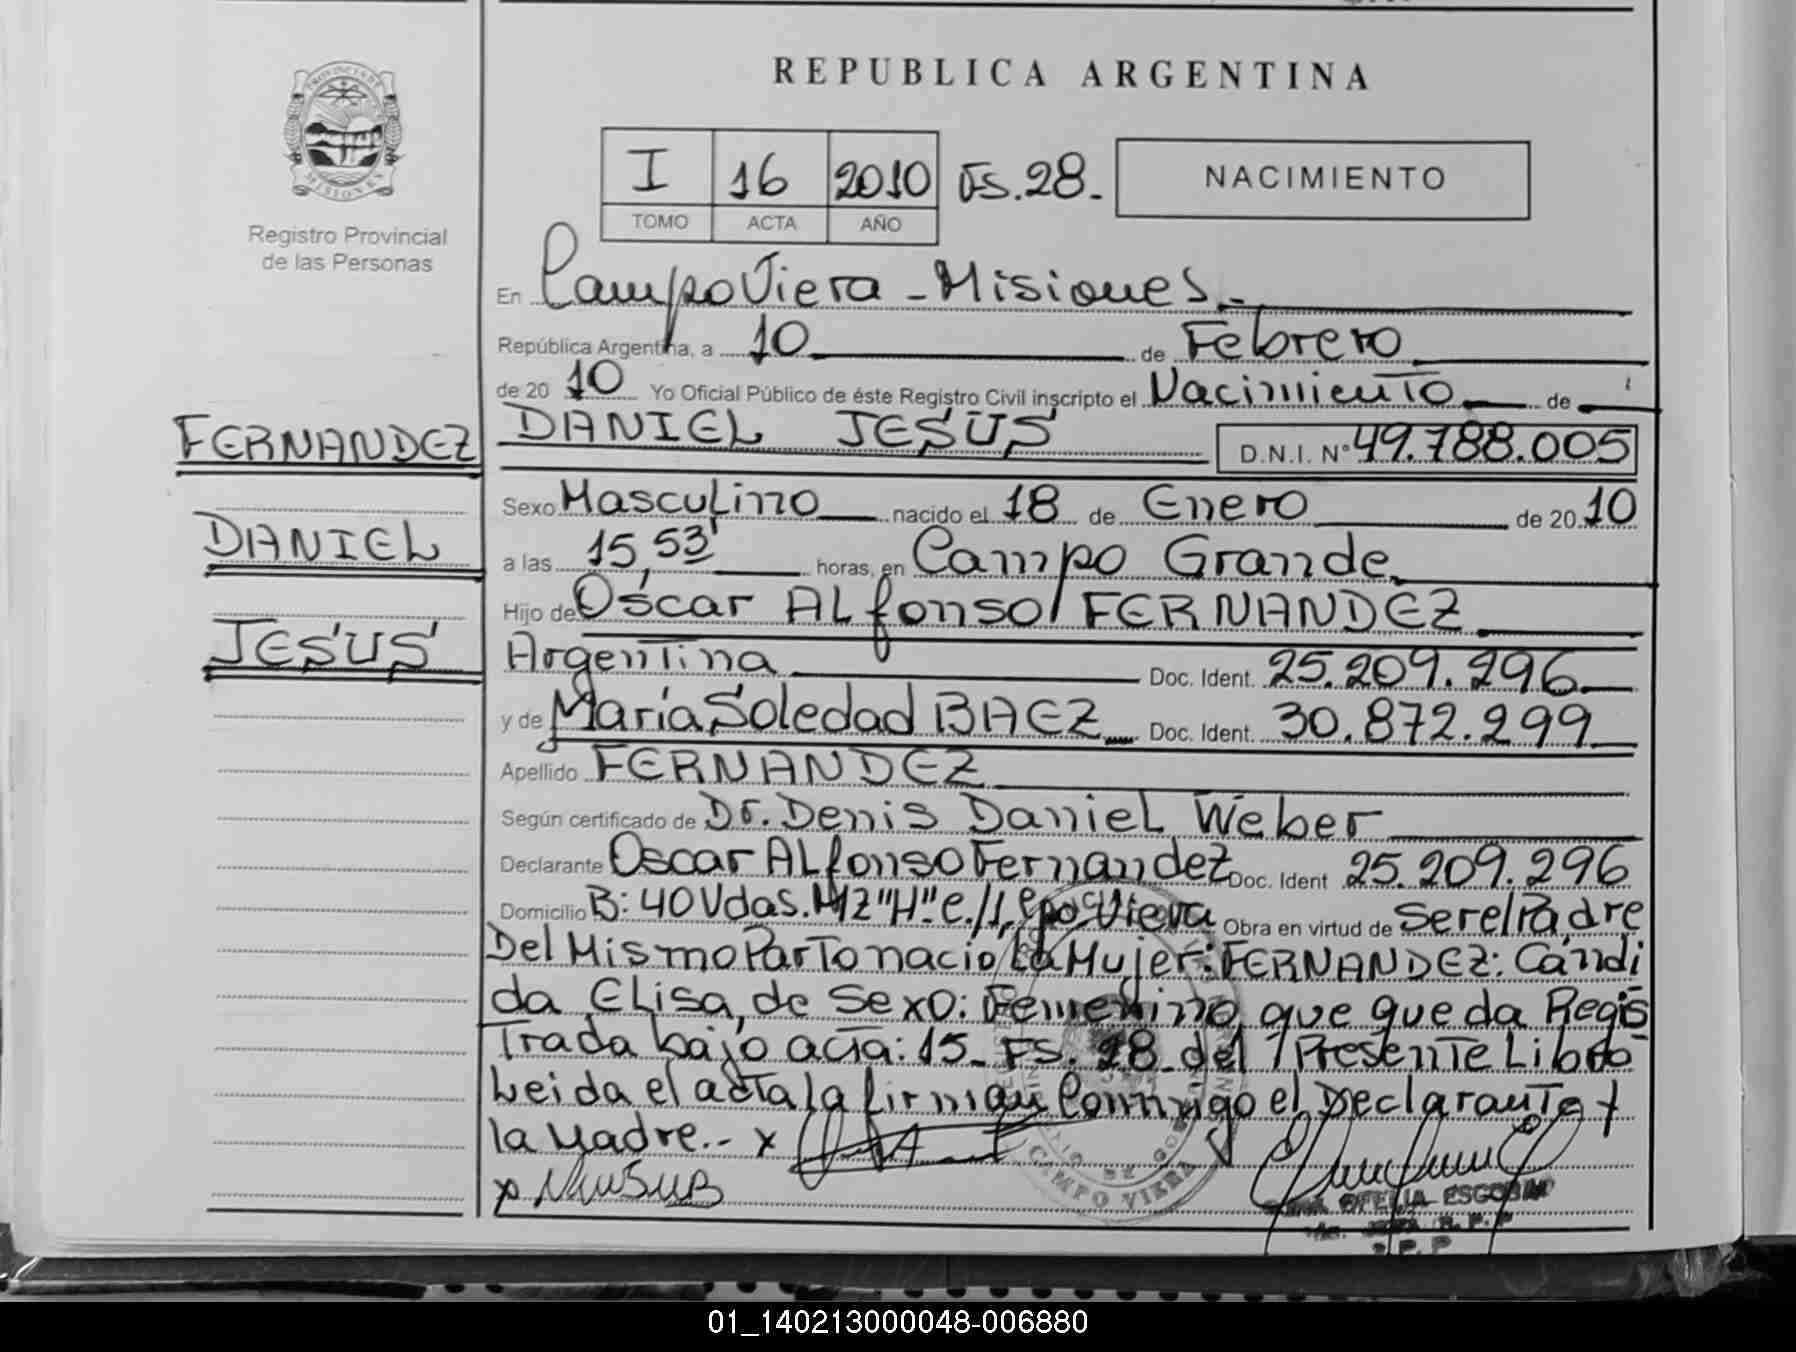 REPUBLICA ARGENTINA
PROVINCIA DE MISIONES
Registro Provincial
de las Personas
I 16 2010 FS. 28.-
TOMO ACTA AÑO
NACIMIENTO
En Campo Viera - Misiones.-
República Argentina, a 10 de Febrero
de 2010 Yo Oficial Público de éste Registro Civil inscripto el Nacimiento de
FERNANDEZ
DANIEL
JESÚS
DANIEL JESÚS D.N.I. N° 49.788.005
Sexo Masculino nacido el 18 de Enero de 2010
a las 15,53' horas, en Campo Grande
Hijo de Oscar Alfonso FERNANDEZ
Argentina Doc. Ident. 25.209.296
y de María Soledad BAEZ Doc. Ident. 30.872.299
Apellido FERNANDEZ
Según certificado de Dr. Denis Daniel Weber
Declarante Oscar Alfonso Fernandez Doc. Ident 25.209.296
Domicilio B: 40 Vdas. Mz "H" C./1, Cpo Viera Obra en virtud de Ser el Padre
Del Mismo Parto nacio la Mujer: FERNANDEZ: Cándi
da Elisa, de Sexo: Femenino que queda Regis
Trada bajo acta: 15- FS. 28 del Presente Libro-
Leida el acta la firman Conmigo el Declarante y
la Madre.- x
x
CAMPO VIERA
OFELIA ESCOBAR
R.P.P
01_140213000048-006880